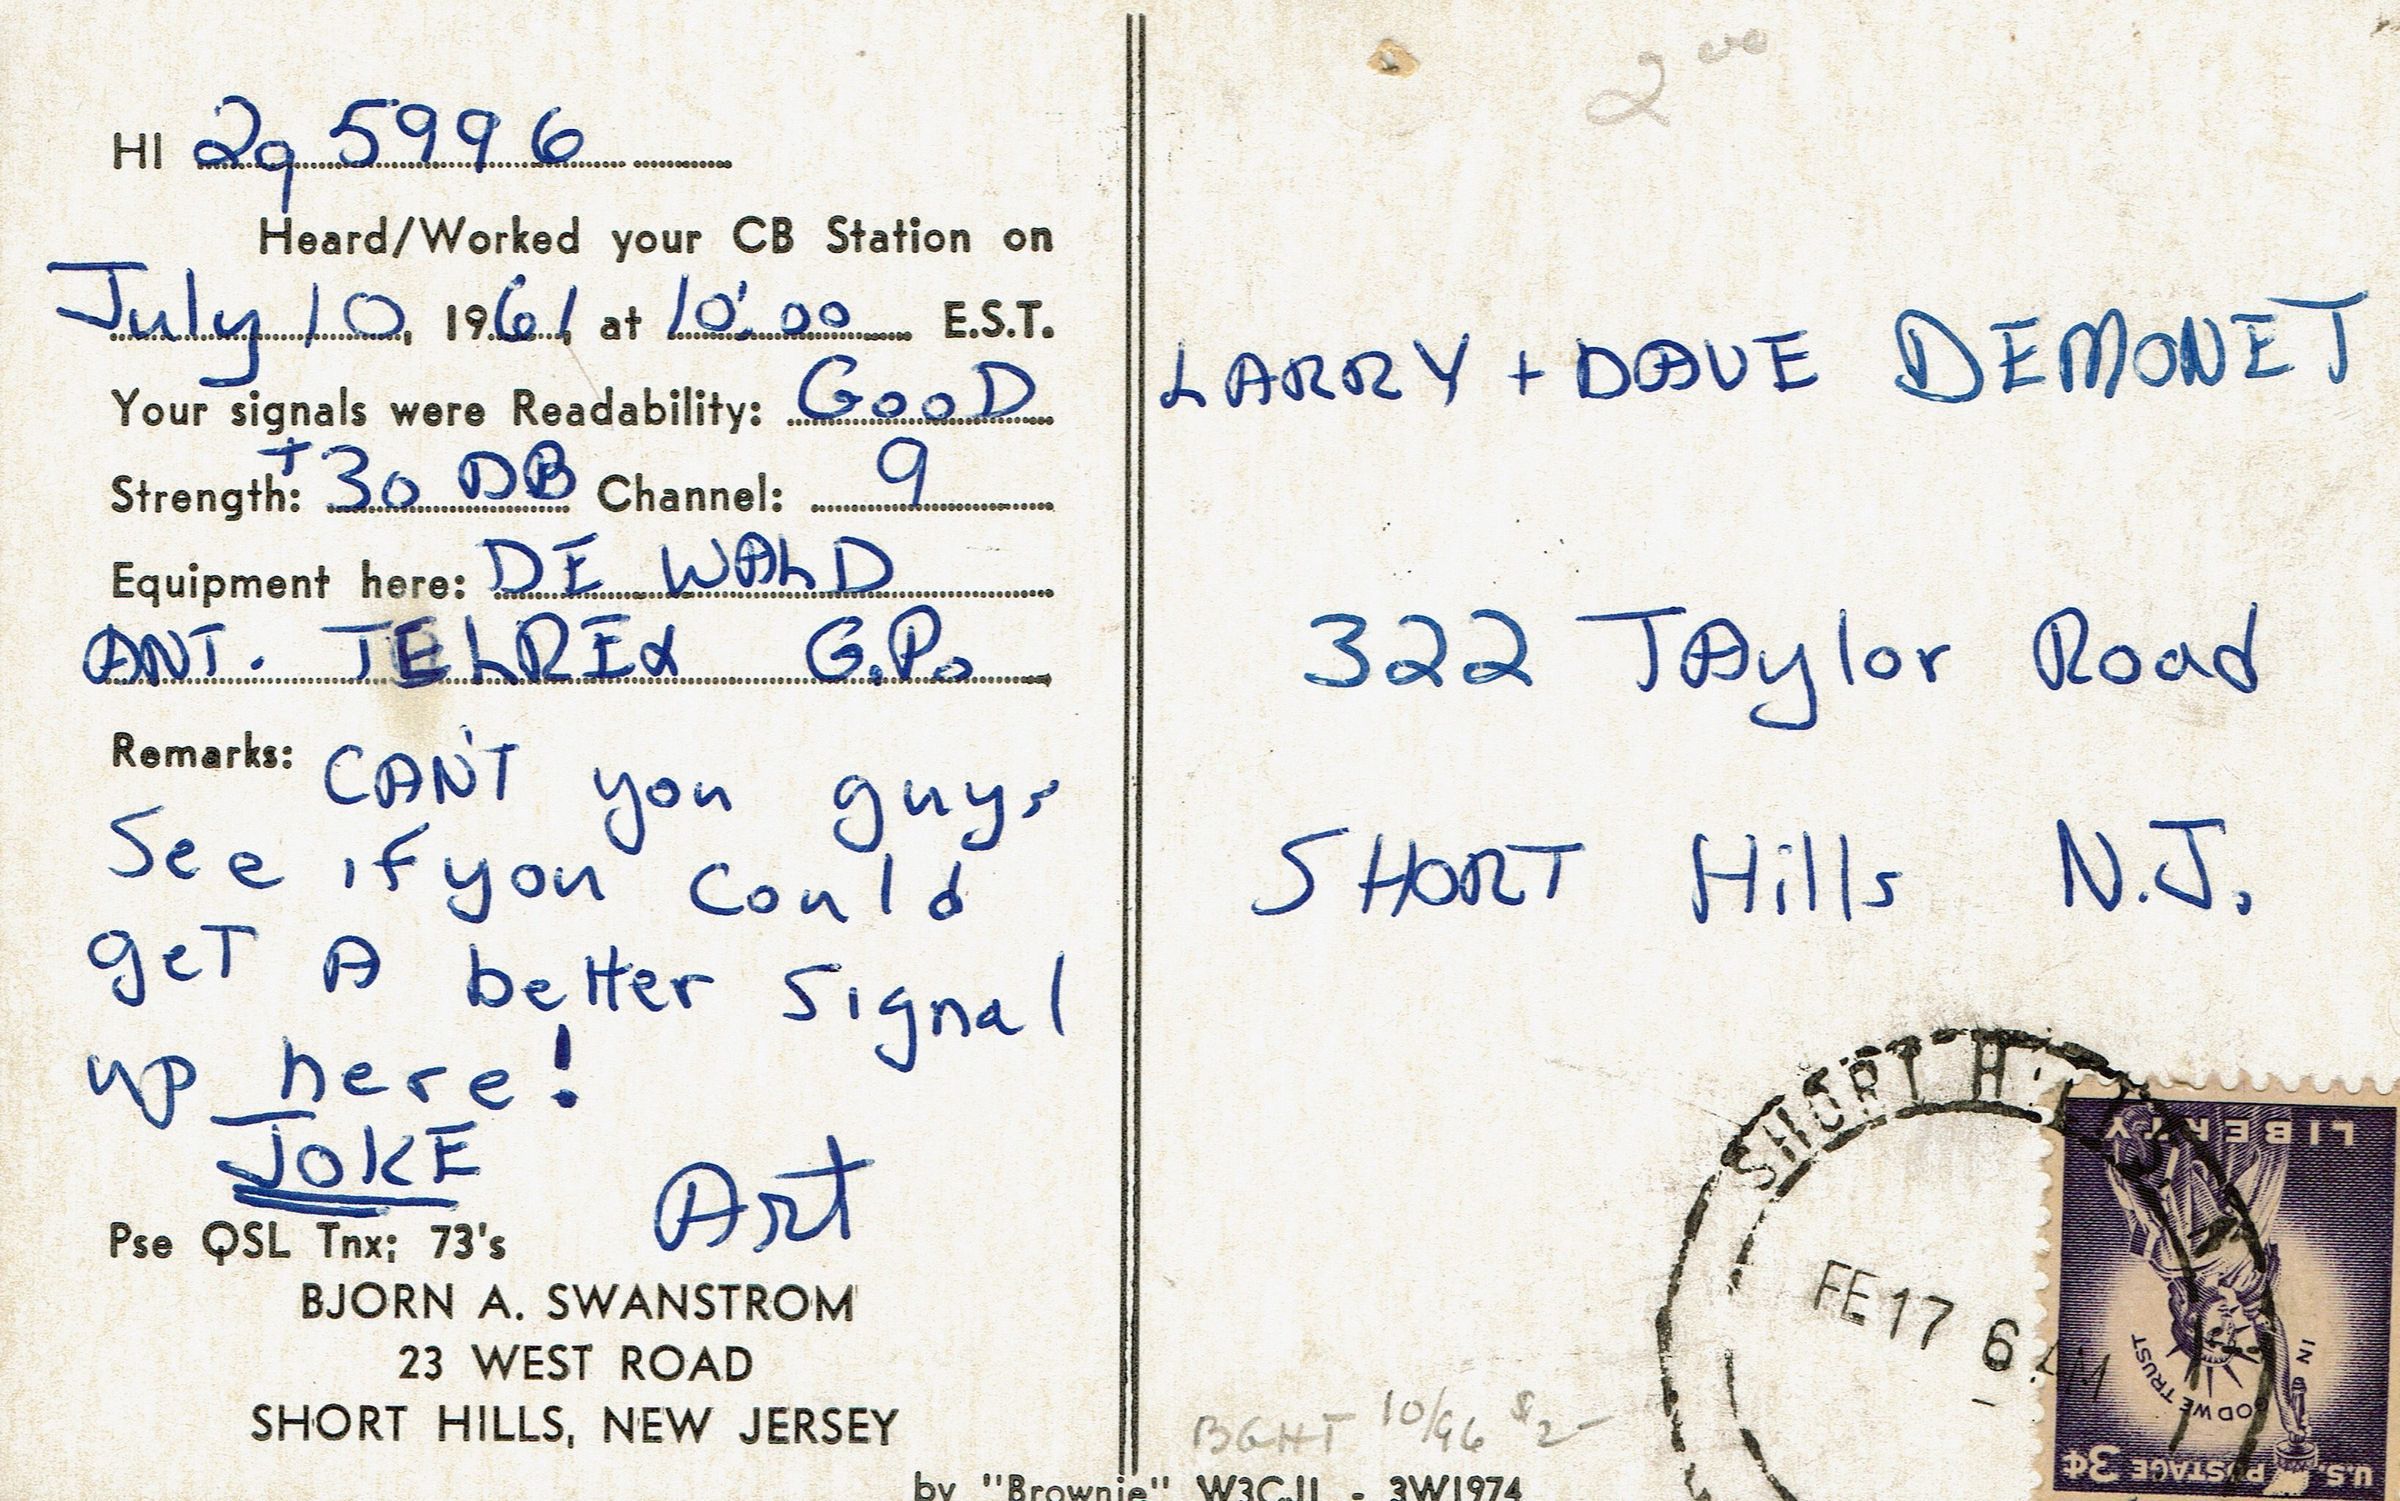 HI 2q 5996
Heard/Worked your CB Station on
July 10, 1961, at 10:00 E.S.T.
Your signals were Readability: GooD
Strength: +30 DB Channel: 9
Equipment here: DE WALD
ANT. TELREX G.P.
Remarks: CAN'T you guys
See if you could
geT A better signal
up here!
JOKE
Art
Pse QSL Tnx; 73's
BJORN A. SWANSTROM
23 WEST ROAD
SHORT HILLS, NEW JERSEY
by "Brownie" W3CJI - 3W1974
2 00
LARRY + DAVE DEMONET
322 TAylor Road
SHORT Hills N.J.
SHORT HI
FE 17 6 AM
LIBERTY
IN GOD WE TRUST
U.S. POSTAGE 3¢
BGHT 10/96 $2-